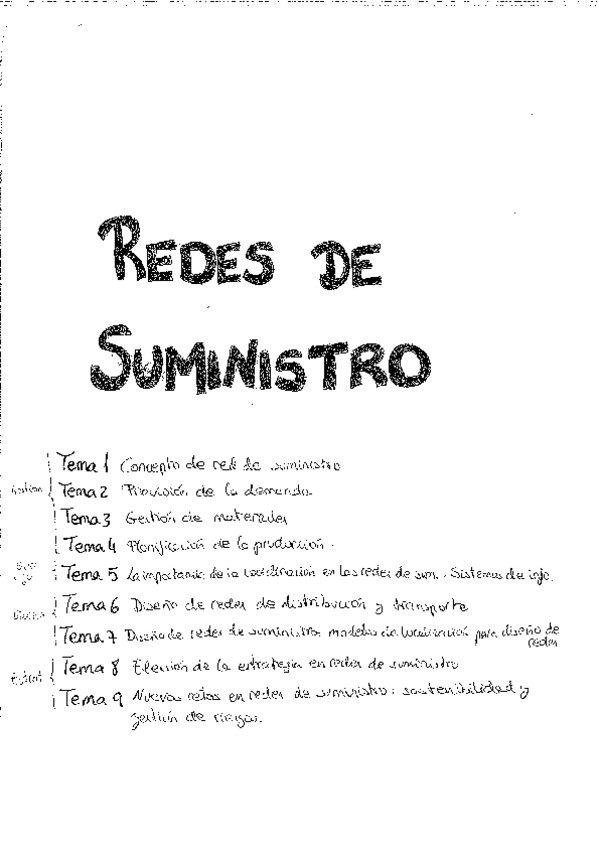 REDES DE
SUMINISTRO
Tema 1 Concepto de red de suministro
Tema 2 Previsión de la demanda
Tema 3 Gestión de materiales
Tema 4 Planificación de la producción.
Tema 5 La importancia de la coordinación en las redes de sum. Sistemas de info.
Diseño Tema 6 Diseño de redes de distribución y transporte
Tema 7 Diseño de redes de suministro: modelos de localización para diseño de
redes
Tema 8 Elección de la estrategia en redes de suministro
Tema 9 Nuevos retos en redes de suministro: sostenibilidad y
gestión de riesgos.